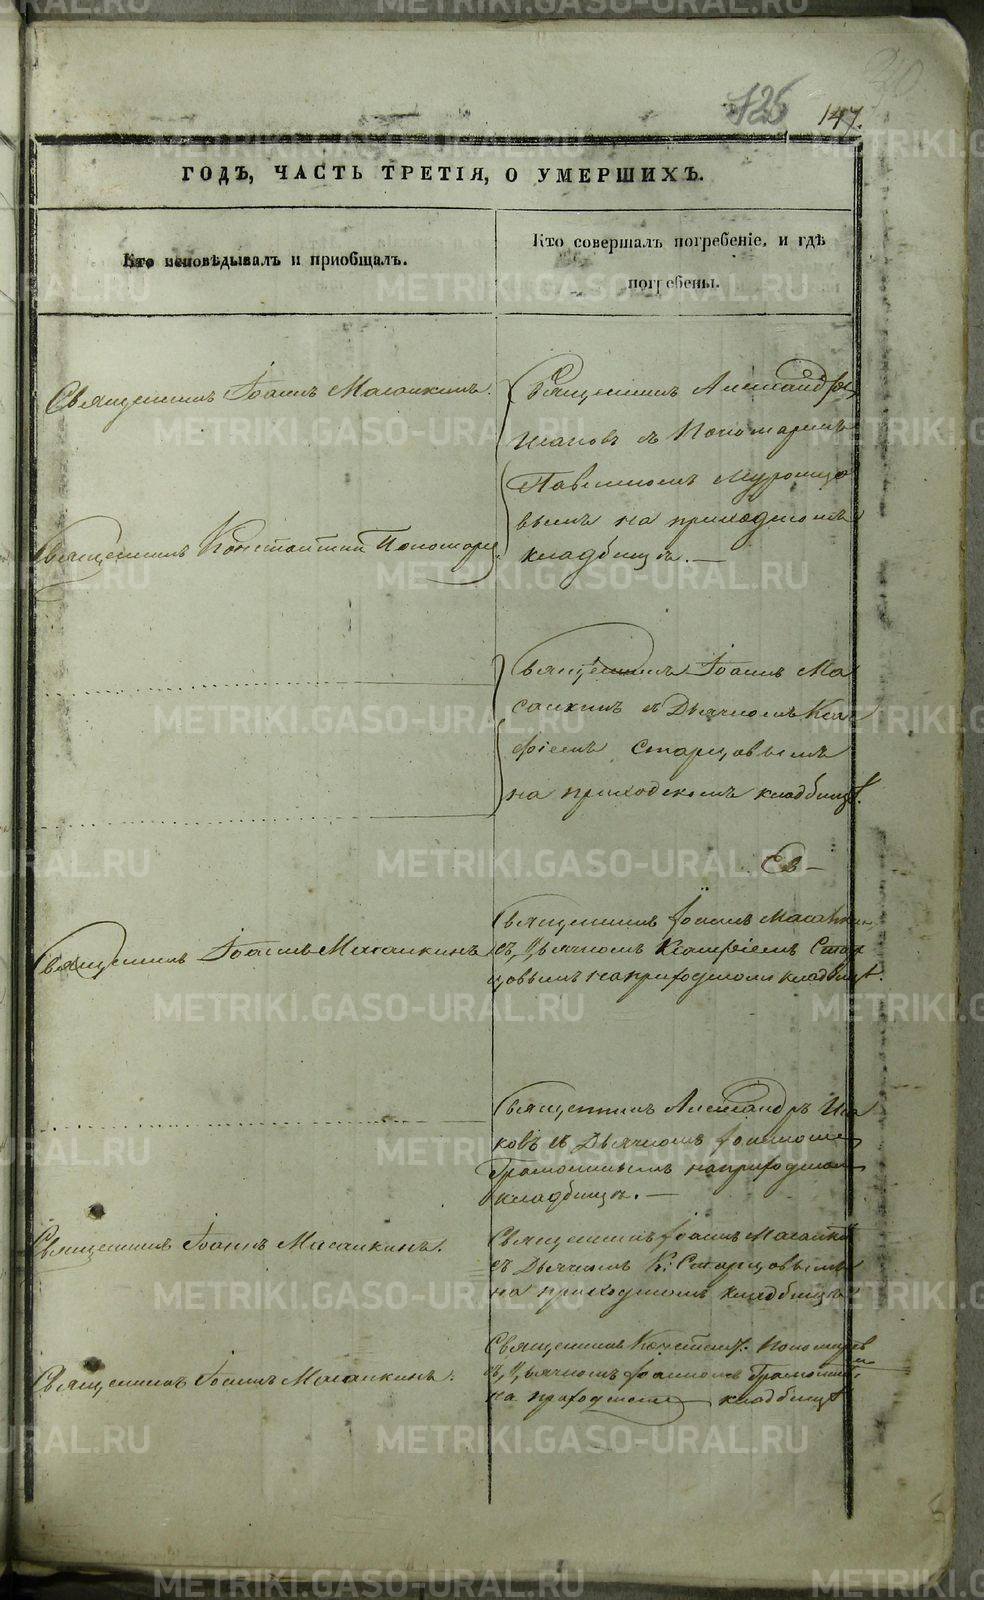 125 147.
ГОДЪ, ЧАСТЬ ТРЕТІЯ, О УМЕРШИХЪ.
Кто исповѣдывалъ и пріобщалъ.
Кто совершалъ погребеніе, и гдѣ
погребены.
Священникъ Іоаннъ Масалкинъ.
Священникъ Александръ
Ислаковъ съ Пономаремъ
Павлиномъ
вымъ на приходскомъ
кладбищѣ.—
Священникъ Константинъ Пономарев
Священникъ Іоаннъ Ма
салкинъ съ Дьячкомъ
фіемъ Старцовымъ
на приходскомъ кладбищѣ.
Св—
Священникъ Іоаннъ Масалкинъ
Священникъ Іоаннъ Масалкин
съ Дьячкомъ Стар
цовымъ на приходскомъ кладбищѣ.
Священникъ Александръ
ковъ съ Дьячкомъ Іоанномъ
на приходском
кладбищѣ.—
Священникъ Іоаннъ Масалкинъ.
Священникъ Іоаннъ Масалки
съ Дьячком К: Старцовымъ
на приходскомъ кладбищѣ
Священникъ Іоаннъ Масалкинъ.
Священникъ Констант. Пономарев
съ Дьячкомъ Іоанномъ
на приходскомъ кладбищѣ
METRIKI.GASO-URAL.RU